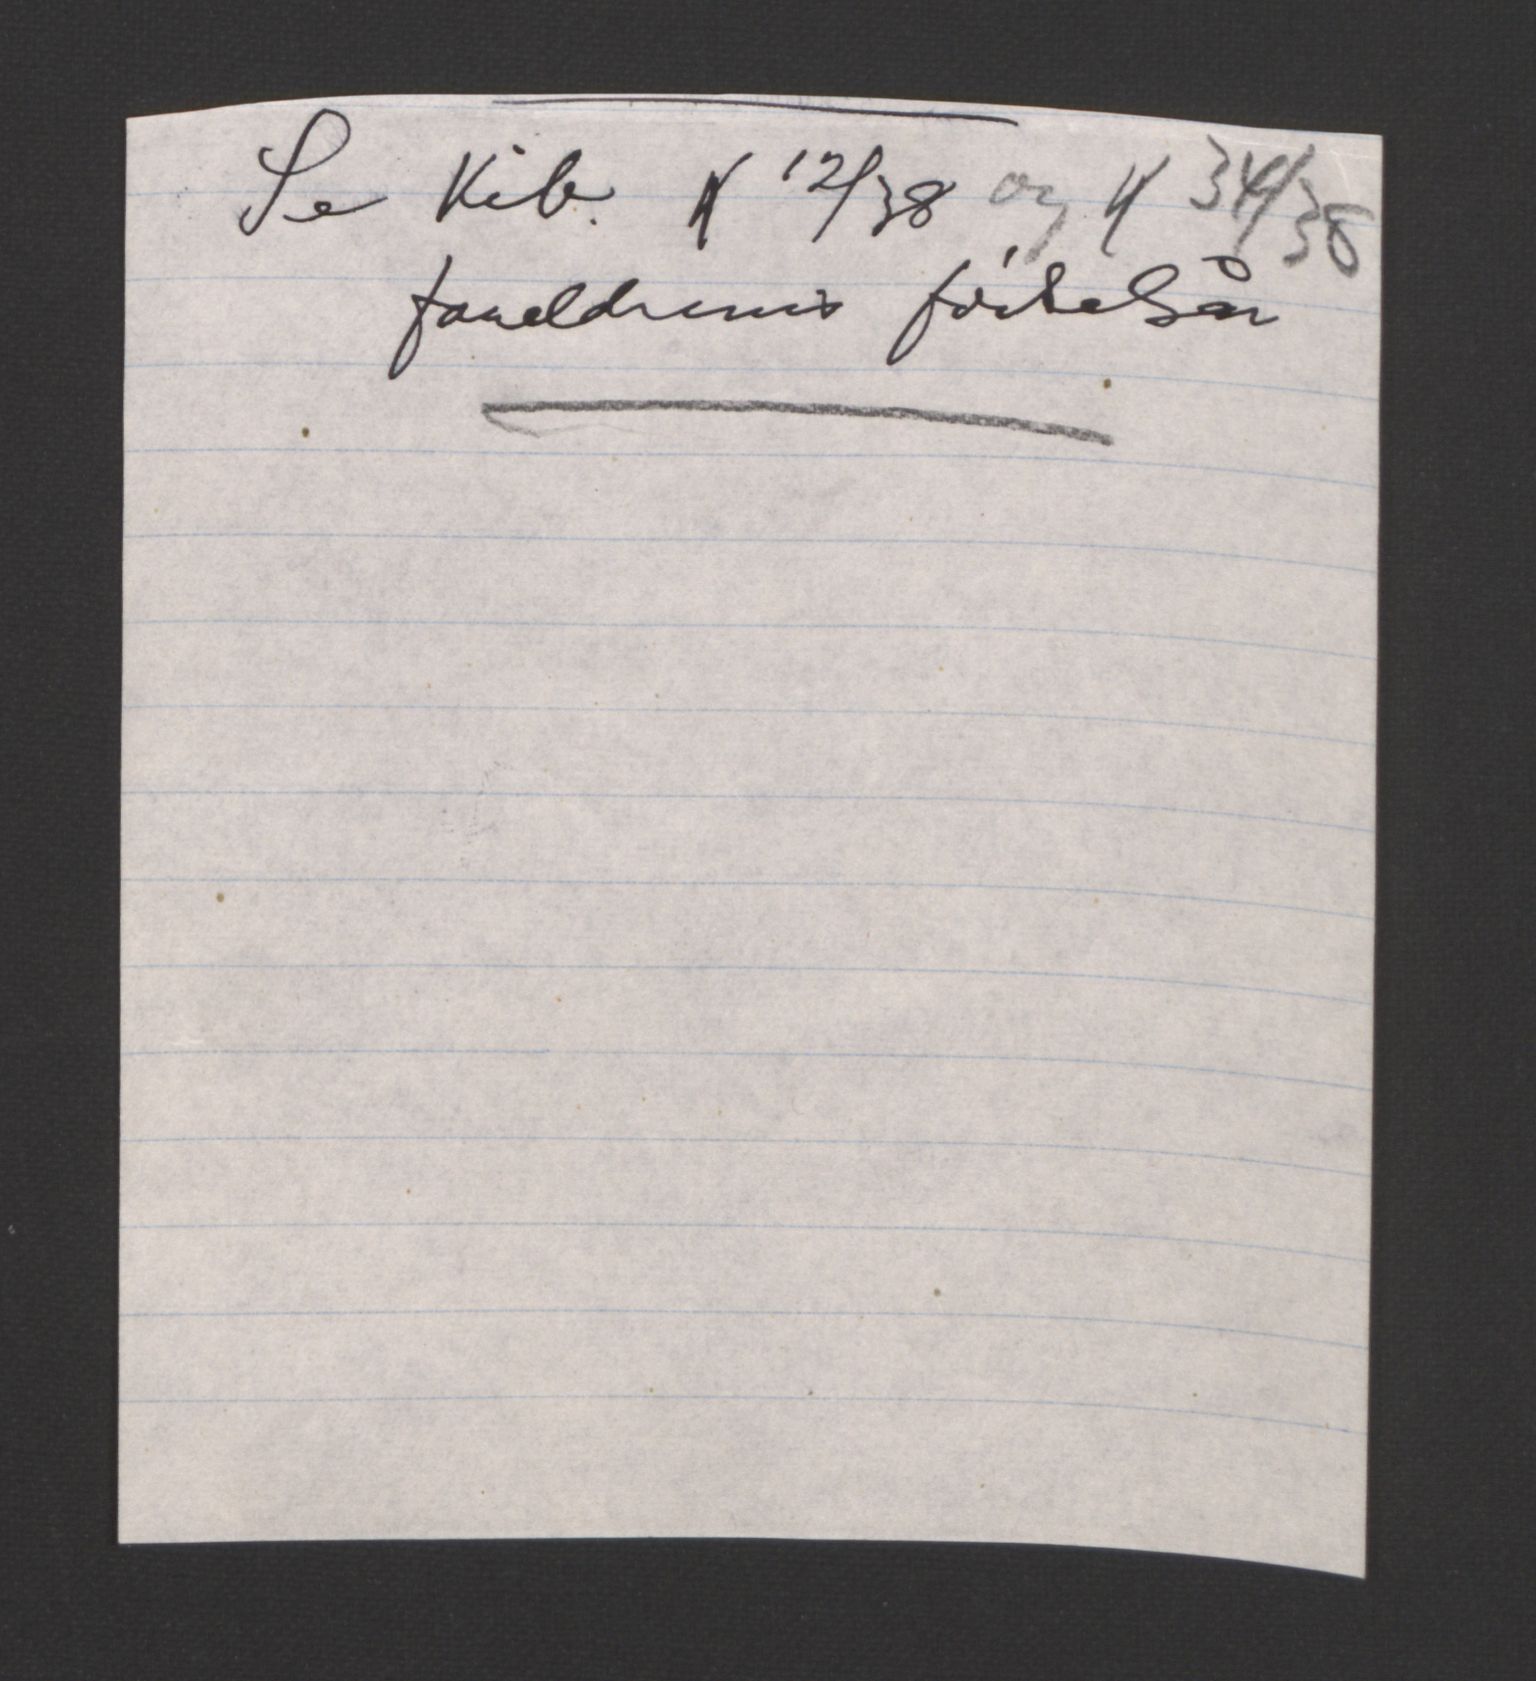 Se Kib. N 12/38 og N 34/38
foreldrenes fødselsår